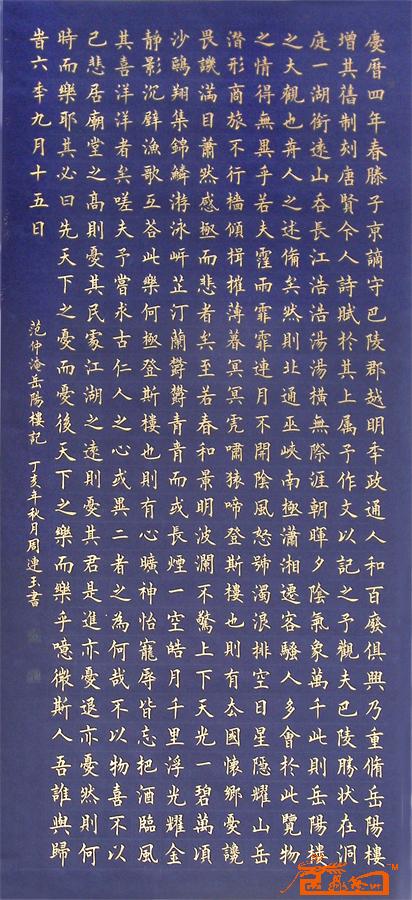 慶曆四年春滕子京謫守巴陵郡越明年政通人和百廢俱興乃重脩岳陽樓
增其舊制刻唐賢今人詩賦於其上属予作文以記之予觀夫巴陵勝狀在洞
庭一湖銜遠山吞長江浩浩湯湯橫無際涯朝暉夕陰氣象萬千此則岳陽樓
之大觀也歬人之述備矣然則北通巫峽南極瀟湘遷客騷人多會於此覽物
之情得無異乎若夫霪雨霏霏連月不開陰風怒號濁浪排空日星隱耀山岳
潛形商旅不行檣傾楫摧薄暮冥冥虎嘯猿啼登斯樓也則有去國懷鄉憂讒
畏譏滿目蕭然感極而悲者矣至若春和景明波瀾不驚上下天光一碧萬頃
沙鷗翔集錦鱗游泳岸芷汀蘭鬱鬱青青而或長煙一空皓月千里浮光耀金
靜影沉璧漁歌互荅此樂何極登斯樓也則有心曠神怡寵辱皆忘把酒臨風
其喜洋洋者矣嗟夫予嘗求古仁人之心或異二者之為何哉不以物喜不以
己悲居廟堂之高則憂其民處江湖之遠則憂其君是進亦憂退亦憂然則何
時而樂耶其必曰先天下之憂而憂後天下之樂而樂乎噫微斯人吾誰與歸
旹六季九月十五日
范仲淹岳陽樓記 丁亥年秋月周連玉書